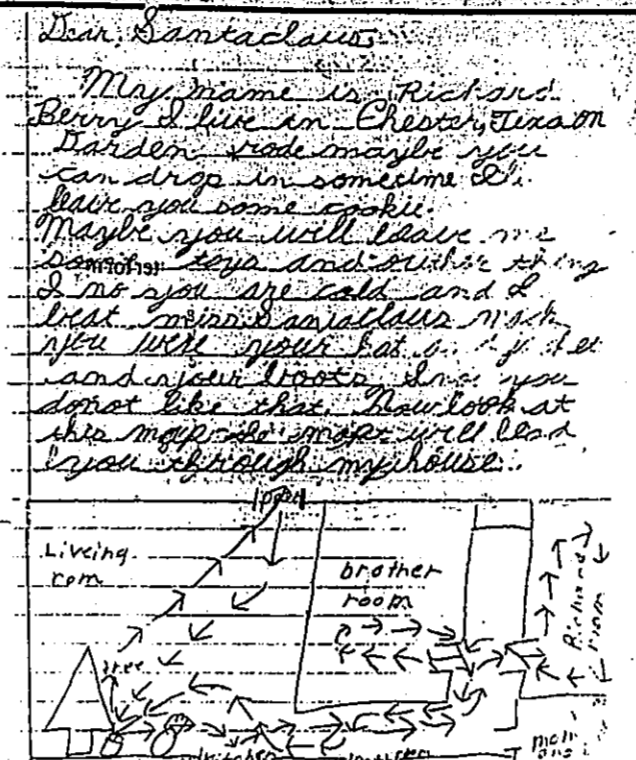 Dear, Santaclaus
My name is Richard
Berry I live in Chester, Texa on
Darden rode maybe you
can drop in sometime I'll
leave you some cookie.
Maybe you will leave me
some toys and outher thing
I no you are cold and I
beat miss Santaclaus mack
you were your hat
and your boots I no you
donot like that. Now look at
this map the map will lead
you through my house.
Liveing
rom
brother
room
Richard
room
tree
kitchen